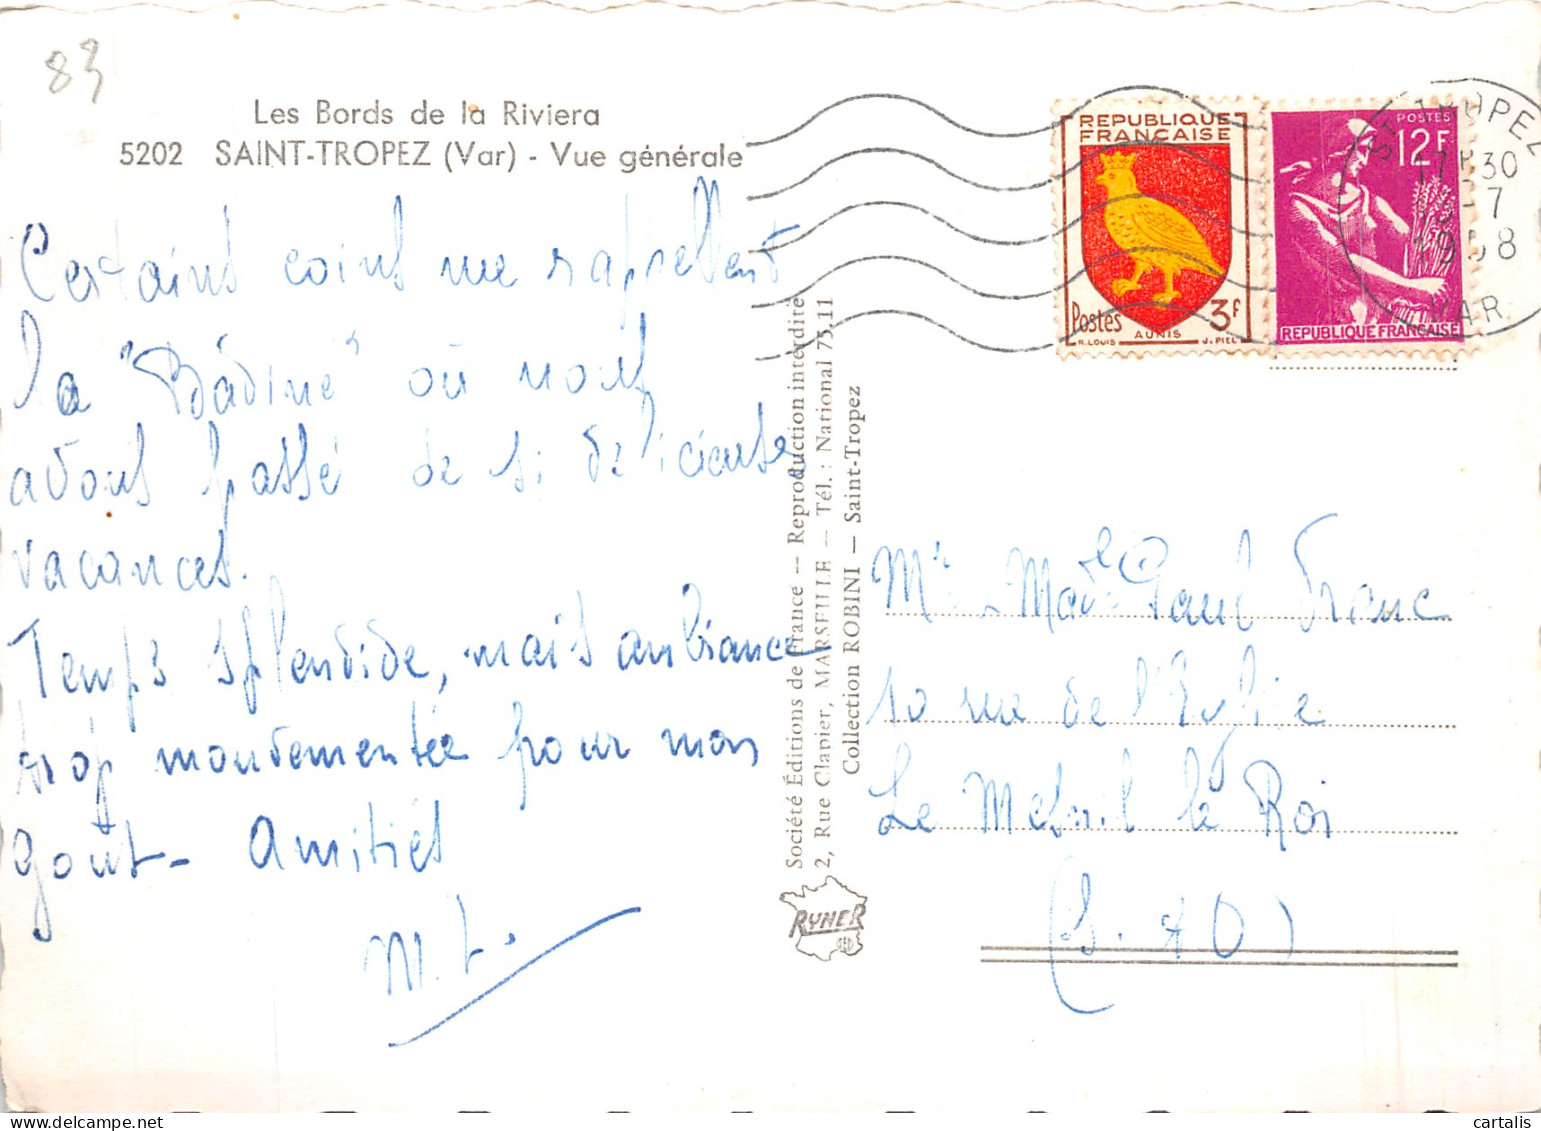 83
Les Bords de la Riviera
5202 SAINT-TROPEZ (Var) - Vue générale
Certains coins me rappellent
la "Badine" où nous
avons passé de si délicieuses
vacances.
Temps splendide, mais ambiance
trop mondementée pour mon
goût - Amitiés
M. L.
Société Éditions de France -- Reproduction interdite
2, Rue Clapier, MARSEILLE — Tél. : National 75.11
Collection ROBINI — Saint-Tropez
RYNER
RÉPUBLIQUE
FRANÇAISE
Postes 3F
AUNIS
R. LOUIS J. PIEL
POSTES
12F
REPUBLIQUE FRANÇAISE
ST TROPEZ
17H30
-7
1958
VAR
Mr Made Paul Franc
10 rue de l'Eglise
Le Mesnil le Roi
(S. & O)
cartalis